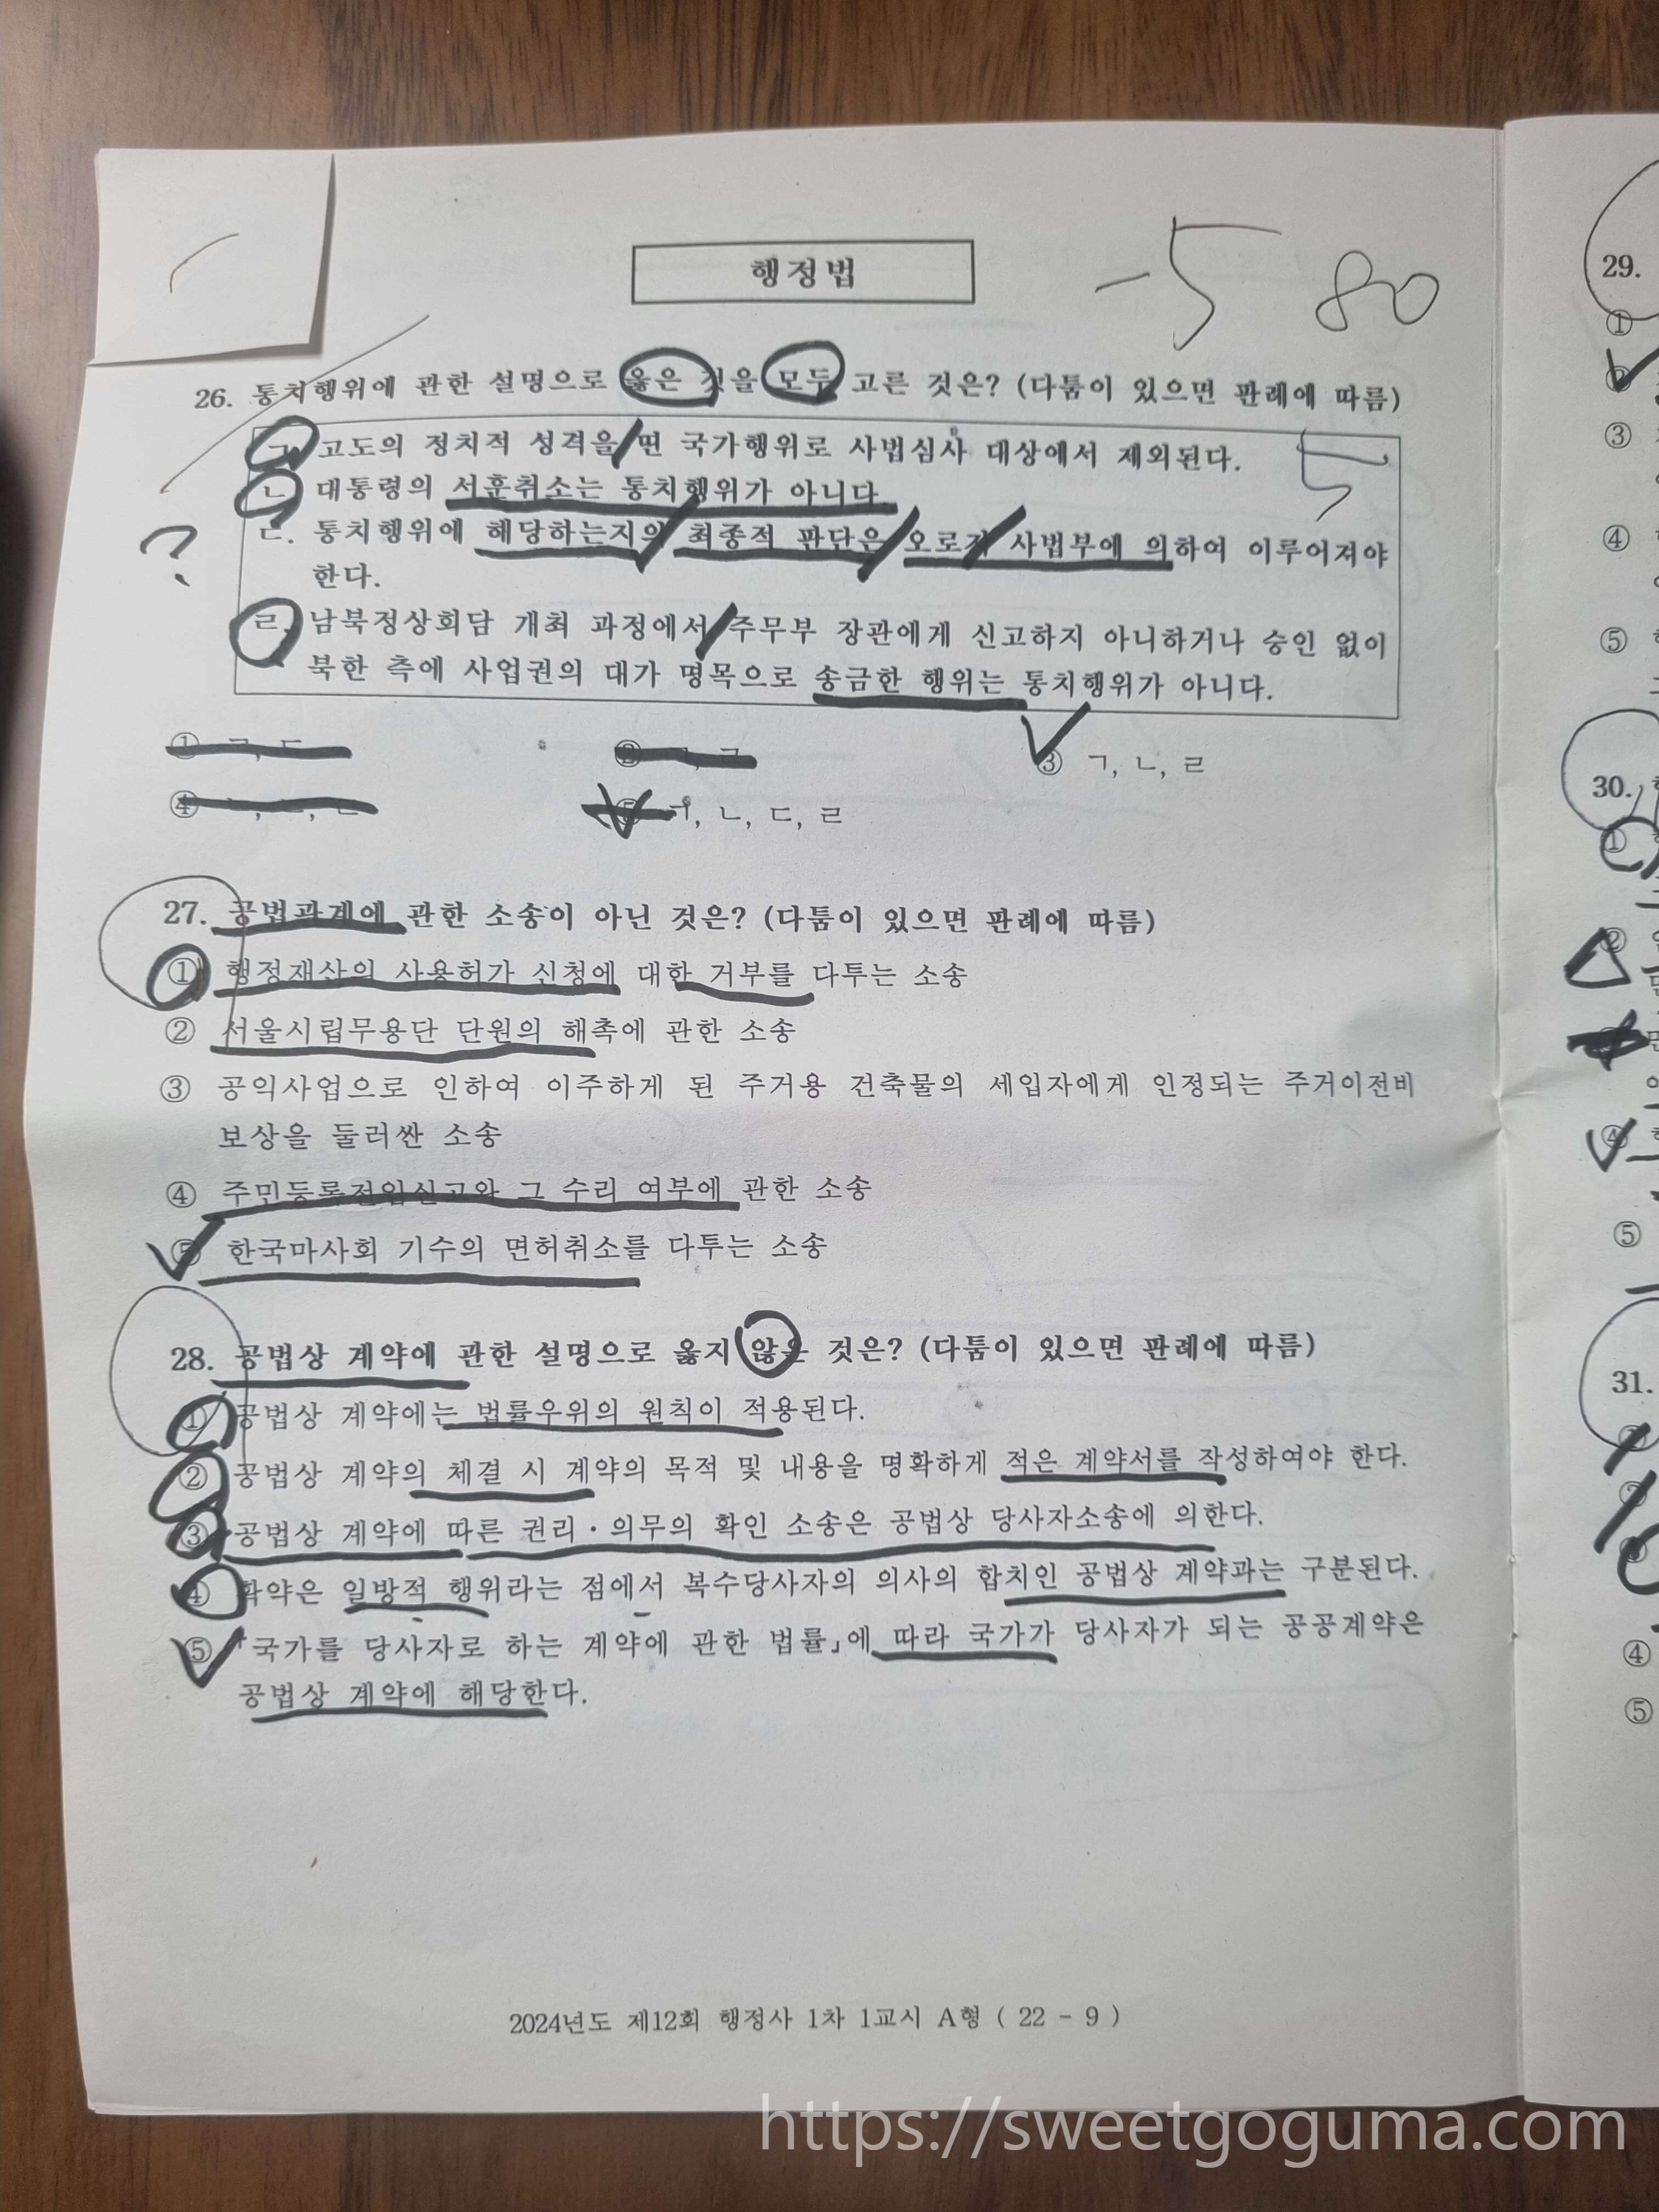 행정법
-5 80
29.
26. 통치행위에 관한 설명으로 옳은 것을 모두 고른 것은? (다툼이 있으면 판례에 따름)
ㄱ. 고도의 정치적 성격을 띤 국가행위로 사법심사 대상에서 제외된다.
5
ㄴ. 대통령의 서훈취소는 통치행위가 아니다.
ㄷ. 통치행위에 해당하는지의 최종적 판단은 오로지 사법부에 의하여 이루어져야
?
한다.
ㄹ. 남북정상회담 개최 과정에서 주무부 장관에게 신고하지 아니하거나 승인 없이
북한 측에 사업권의 대가 명목으로 송금한 행위는 통치행위가 아니다.
① ㄱ, ㄷ
③ ㄱ, ㄴ, ㄹ
④
⑤ ㄱ, ㄴ, ㄷ, ㄹ
27. 공법관계에 관한 소송이 아닌 것은? (다툼이 있으면 판례에 따름)
① 행정재산의 사용허가 신청에 대한 거부를 다투는 소송
② 서울시립무용단 단원의 해촉에 관한 소송
③ 공익사업으로 인하여 이주하게 된 주거용 건축물의 세입자에게 인정되는 주거이전비
보상을 둘러싼 소송
④ 주민등록전입신고와 그 수리 여부에 관한 소송
⑤ 한국마사회 기수의 면허취소를 다투는 소송
28. 공법상 계약에 관한 설명으로 옳지 않은 것은? (다툼이 있으면 판례에 따름)
① 공법상 계약에는 법률우위의 원칙이 적용된다.
② 공법상 계약의 체결 시 계약의 목적 및 내용을 명확하게 적은 계약서를 작성하여야 한다.
③ 공법상 계약에 따른 권리·의무의 확인 소송은 공법상 당사자소송에 의한다.
④ 확약은 일방적 행위라는 점에서 복수당사자의 의사의 합치인 공법상 계약과는 구분된다.
⑤ 「국가를 당사자로 하는 계약에 관한 법률」에 따라 국가가 당사자가 되는 공공계약은
공법상 계약에 해당한다.
2024년도 제12회 행정사 1차 1교시 A형 ( 22 - 9 )
①
③
④
⑤
30.
①
②
④
⑤
31.
④
⑤
https://sweetgoguma.com